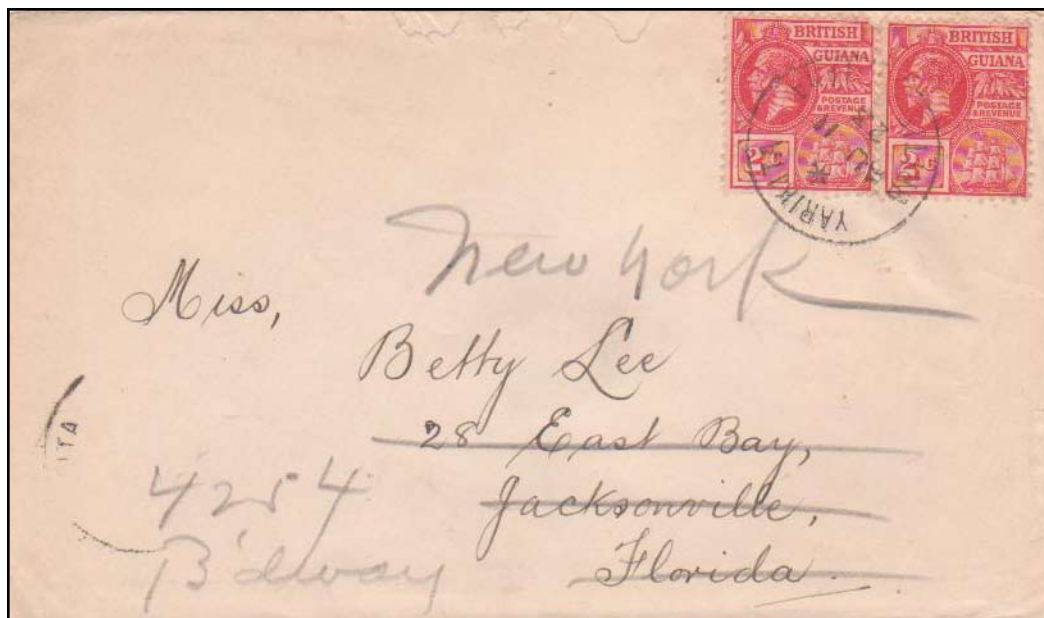 BRITISH
GUIANA
POSTAGE
& REVENUE
2c
BRITISH
GUIANA
POSTAGE
& REVENUE
2c
AU
23
YARIKITA
New York
Miss,
Betty Lee
28 East Bay,
Jacksonville,
Florida.
ITA
4254
B'dway